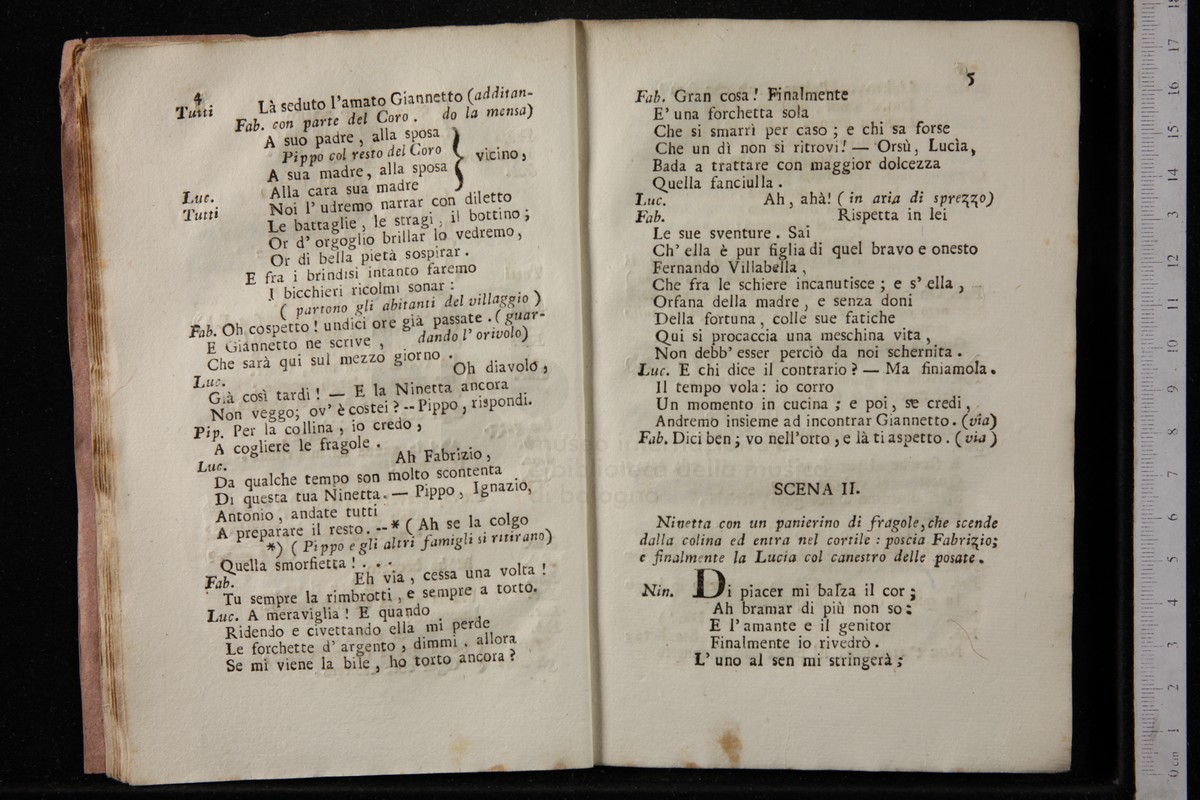 4
Tutti Là seduto l'amato Giannetto (additan-
Fab. con parte del Coro . do la mensa)
A suo padre , alla sposa
Pippo col resto del Coro
vicino,
A sua madre, alla sposa
Luc. Alla cara sua madre
Tutti Noi l' udremo narrar con diletto
Le battaglie , le stragi , il bottino ;
Or d' orgoglio brillar lo vedremo,
Or di bella pietà sospirar .
E fra i brindisi intanto faremo
I bicchieri ricolmi sonar :
( partono gli abitanti del villaggio )
Fab. Oh cospetto ! undici ore già passate . ( guar-
E Giannetto ne scrive , dando l' orivolo)
Che sarà qui sul mezzo giorno .
Luc. Oh diavolo ,
Già così tardi ! — E la Ninetta ancora
Non veggo; ov' è costei ? -- Pippo , rispondi.
Pip. Per la collina , io credo ,
A cogliere le fragole .
Luc. Ah Fabrizio ,
Da qualche tempo son molto scontenta
Di questa tua Ninetta. — Pippo , Ignazio,
Antonio , andate tutti
A preparare il resto. -- * ( Ah se la colgo
*) ( Pippo e gli altri famigli si ritirano)
Quella smorfietta ! . . .
Fab. Eh via , cessa una volta !
Tu sempre la rimbrotti , e sempre a torto.
Luc. A meraviglia ! E quando
Ridendo e civettando ella mi perde
Le forchette d' argento , dimmi , allora
Se mi viene la bile , ho torto ancora ?
5
Fab. Gran cosa ! Finalmente
E' una forchetta sola
Che si smarrì per caso ; e chi sa forse
Che un dì non si ritrovi ! — Orsù, Lucìa,
Bada a trattare con maggior dolcezza
Quella fanciulla .
Luc. Ah , ahà! ( in aria di sprezzo)
Fab. Rispetta in lei
Le sue sventure . Sai
Ch' ella è pur figlia di quel bravo e onesto
Fernando Villabella ,
Che fra le schiere incanutisce ; e s' ella ,
Orfana della madre , e senza doni
Della fortuna , colle sue fatiche
Qui si procaccia una meschina vita ,
Non debb' esser perciò da noi schernita .
Luc. E chi dice il contrario ? — Ma finiamola.
Il tempo vola : io corro
Un momento in cucina ; e poi , se credi ,
Andremo insieme ad incontrar Giannetto . (via)
Fab. Dici ben ; vo nell'orto , e là ti aspetto . ( via )
museo internazionale
e biblioteca della musica
di bologna
SCENA II.
Ninetta con un panierino di fragole, che scende
dalla colina ed entra nel cortile : poscia Fabrizio;
e finalmente la Lucia col canestro delle posate .
Nin. Di piacer mi balza il cor ;
Ah bramar di più non so :
E l' amante e il genitor
Finalmente io rivedrò .
L' uno al sen mi stringerà ;
0 cm 1 2 3 4 5 6 7 8 9 10 11 12 13 14 15 16 17 18